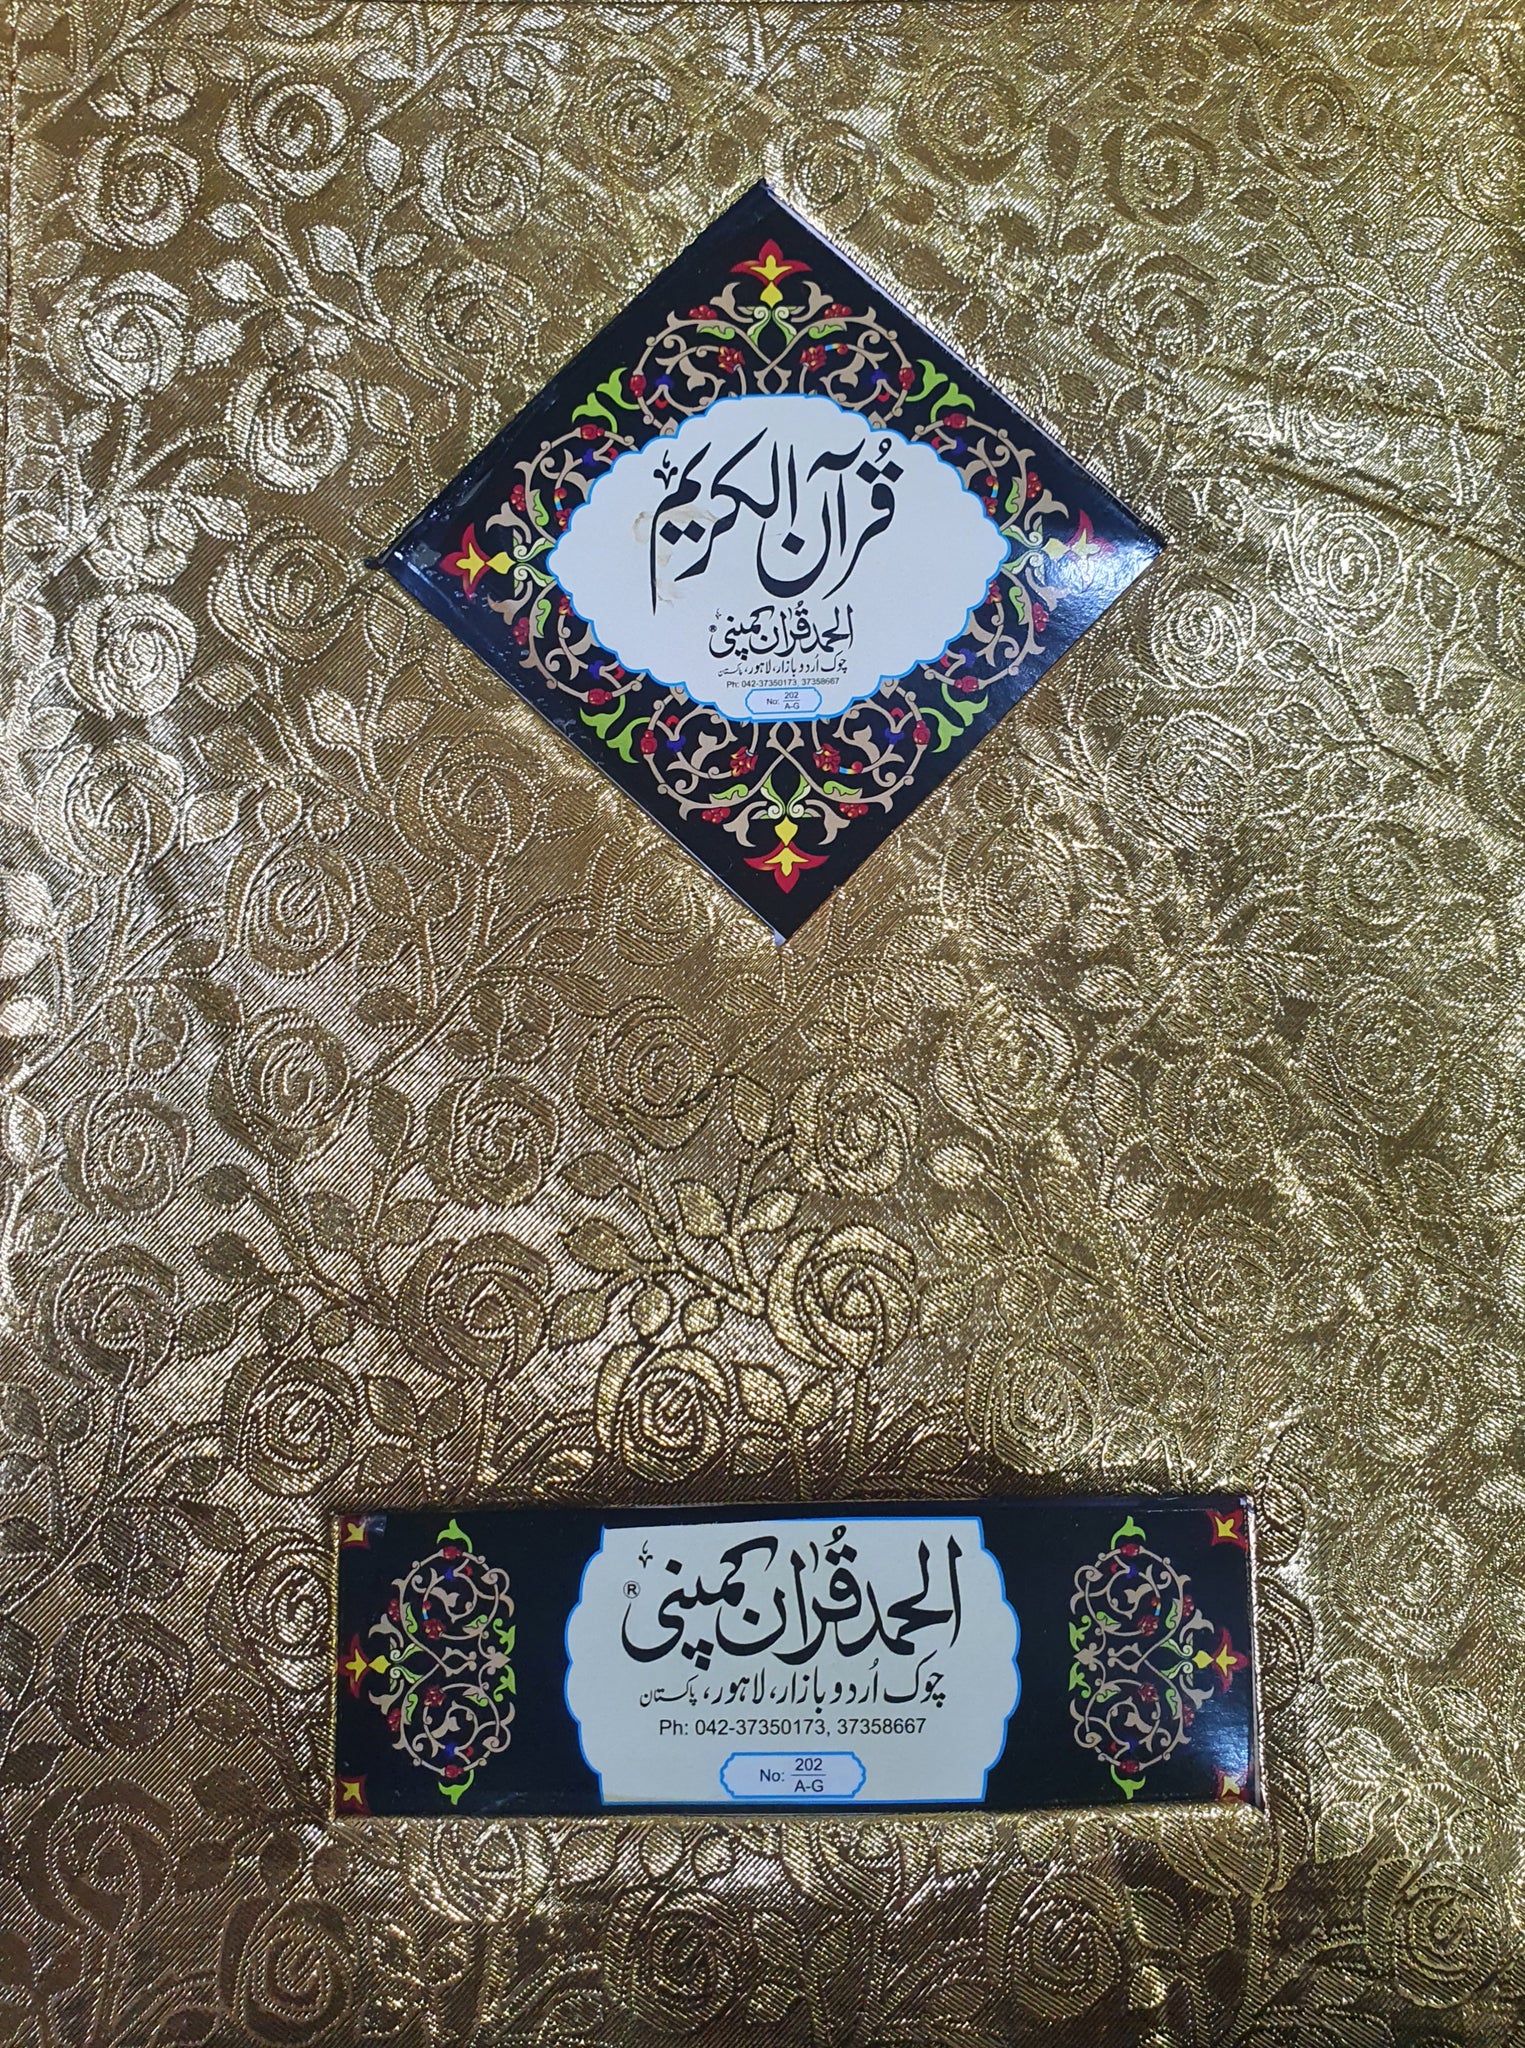 قُرآن الکریم
الحمد قُرآن کمپنی ®
چوک اُردو بازار، لاہور، پاکستان
Ph: 042-37350173, 37358667
No: 202/A-G
الحمد قُرآن کمپنی ®
چوک اُردو بازار، لاہور، پاکستان
Ph: 042-37350173, 37358667
No: 202/A-G